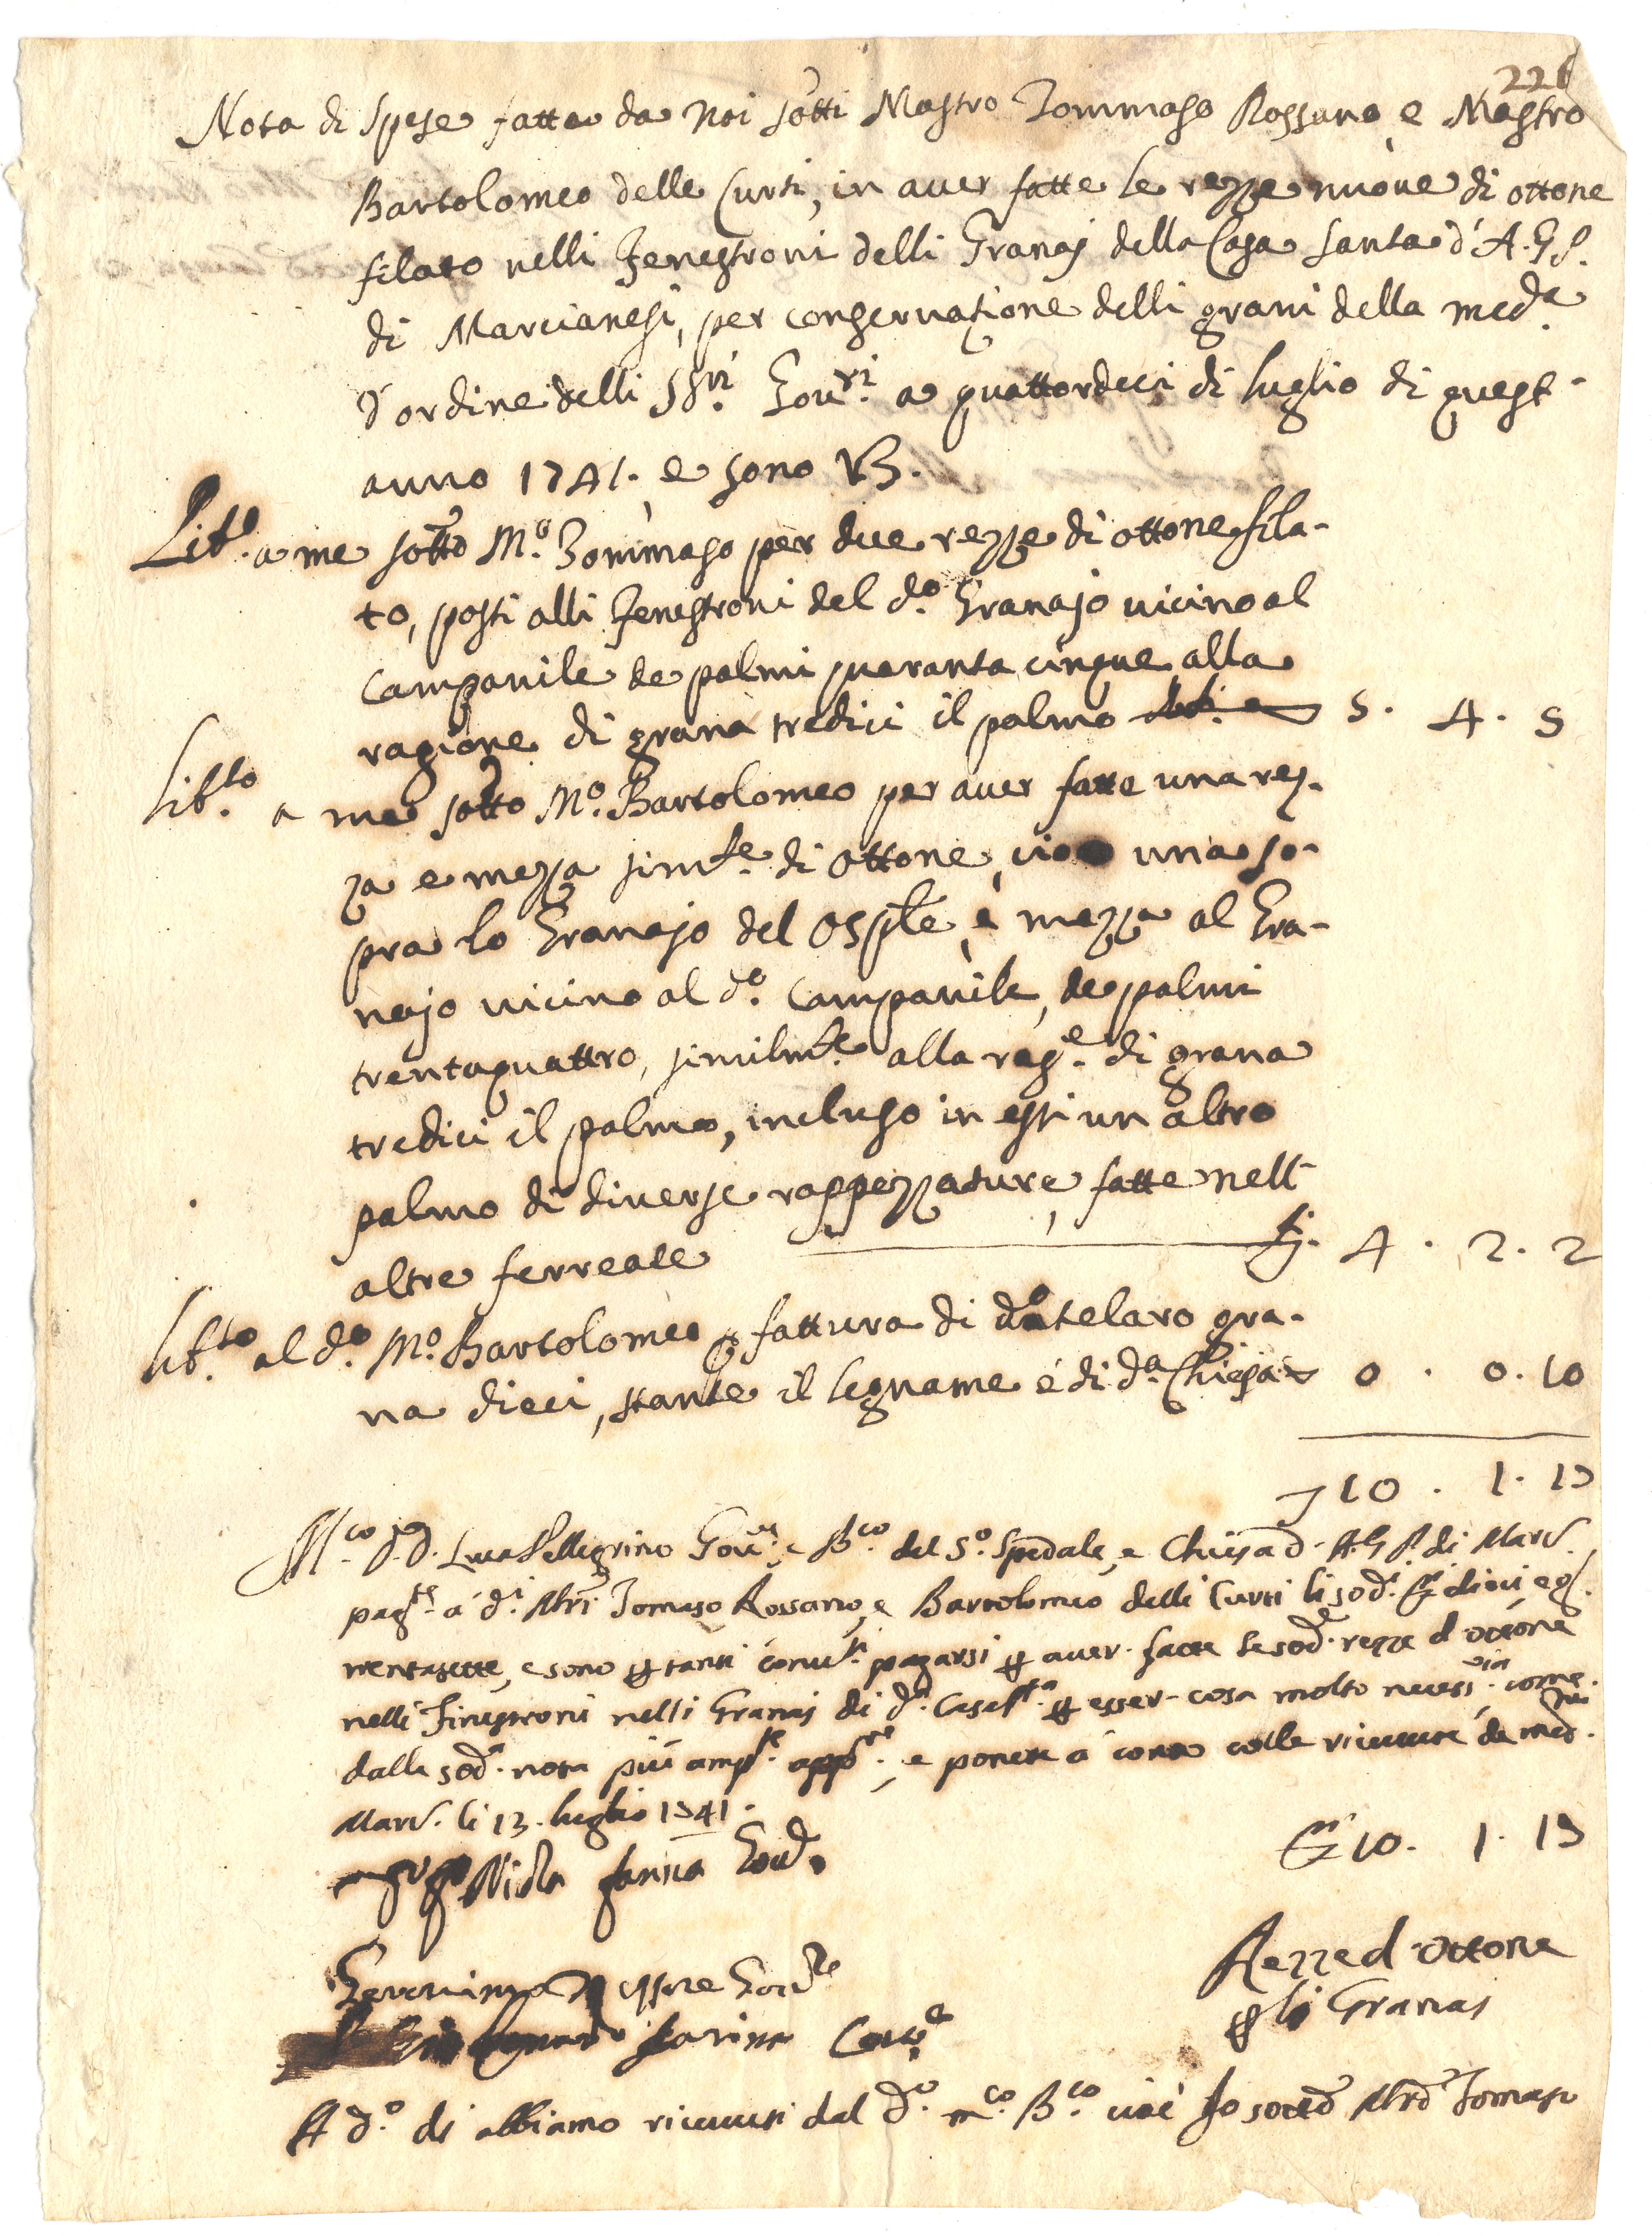 226
Nota di spese fatte da noi sotti Mastro Tommaso Rossano, e Mastro
Bartolomeo delle Curti, in aver fatte le rezze nuove di ottone
filato nelli Fenestroni delli Granaj della Casa Santa d'A.G.P.
di Marcianesi, per conservazione delli grani della med.a
d'ordine delli SS.ri Gov.ri a quattordeci di luglio di quest-
anno 1741. e sono V3.
Lib.o a me sotto M.o Tommaso per due rezze di ottone fila-
to, posti alli Fenestroni del d.o Granajo vicino al
Campanile de palmi quaranta cinque alla
ragione di grana tredici il palmo 5. 4. 5
lib.to a me sotto M.o Bartolomeo per aver fatte una rez-
za e mezza sim.te di ottone, una so-
pra lo Granajo del Osple, e mezza al Gra-
najo vicino al d.o Campanile, de palmi
trentaquattro, similm.te alla rag.e di grana
tredici il palmo, incluso in essi un altro
palmo di diverse rappezzature, fatte nell-
altre ferreate 4. 2. 2
lib.to al d.o M.o Bartolomeo p fattura di d.o telaro gra-
na dieci, stante il legname è di d.a Chiesa 0. 0. 10
10. 1. 17
M.co D.D. Luca Pellegrino Gov.re e B.co del S.o Spedale, e Chiesa d. A.G.P. di Marc.
pag.te á d.i Mri Tomaso Rossano, e Bartolomeo delli Curti li sod.i dieci e g.
trentasette, e sono p tanti conv.ti pagarsi p aver fatte le sod.e rezze d'ottone
nelli Finestroni nelli Granaj di d.a Casa S.ta p esser cosa molto necess.ria come
dalla sod.a nota più amp.te app.re, e ponete á conto colle ricevute de med.mi
Marc. li 13. luglio 1741.
10. 1. 17
Nicola Farina Gov.
Rezze d'ottone
Geronimo Gov.re
p li Granaj
Farina Gov.e
A d.o dì abbiamo ricevuti dal d.o m.co B.co cioè Io sotto Mro Tomaso